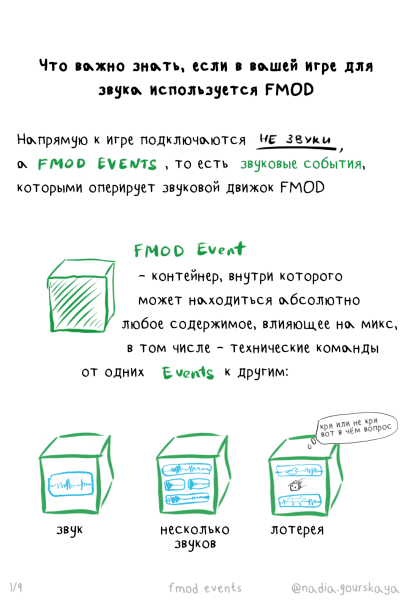 Что важно знать, если в вашей игре для
звука используется FMOD
Напрямую к игре подключаются НЕ ЗВУКИ,
а FMOD EVENTS, то есть звуковые события,
которыми оперирует звуковой движок FMOD
FMOD Event
- контейнер, внутри которого
может находиться абсолютно
любое содержимое, влияющее на микс,
в том числе - технические команды
от одних Events к другим:
кря или не кря
вот в чём вопрос
звук
несколько
звуков
лотерея
1/9
fmod events
@nadia.gourskaya